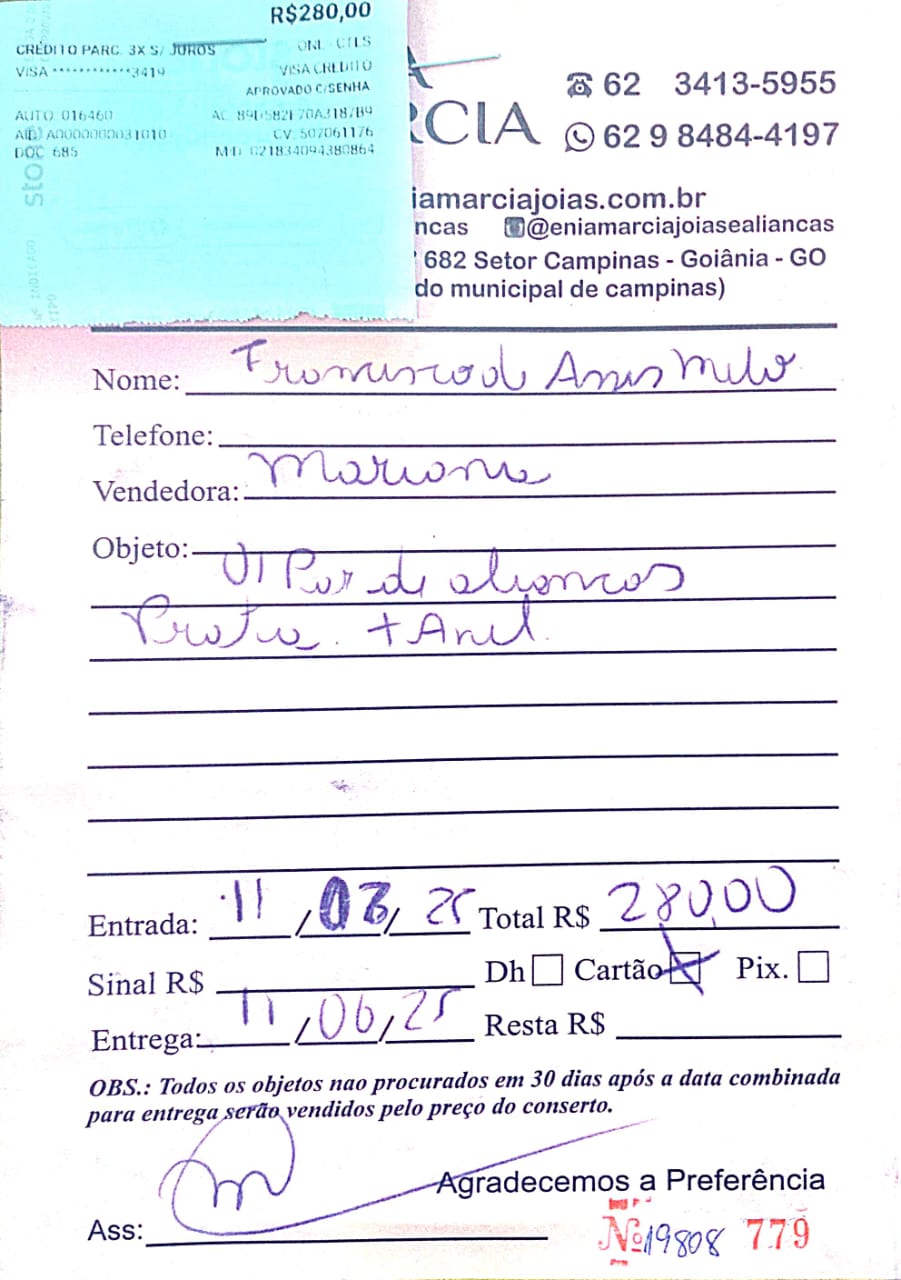 R$280,00
CRÉDITO PARC. 3X S/ JUROS
ONL-CTLS
VISA ************3419
VISA CREDITO
APROVADO C/SENHA
AUTO 016460
AID A0000000031010
CV: 507061176
DOC 685
ston
RCIA
62 3413-5955
62 9 8484-4197
iamarciajoias.com.br
ncas @eniamarciajoiasealiancas
682 Setor Campinas - Goiânia - GO
do municipal de campinas)
Nome: Francisco de Assis Melo
Telefone:
Vendedora: Mariane
Objeto:
01 Par de aliancas
Prata. + Anel.
Entrada: 11/03/25 Total R$ 280,00
Sinal R$ Dh Cartão Pix.
Entrega: 11/06/25 Resta R$
OBS.: Todos os objetos nao procurados em 30 dias após a data combinada
para entrega serão vendidos pelo preço do conserto.
Agradecemos a Preferência
Ass:
Nº 19808 779